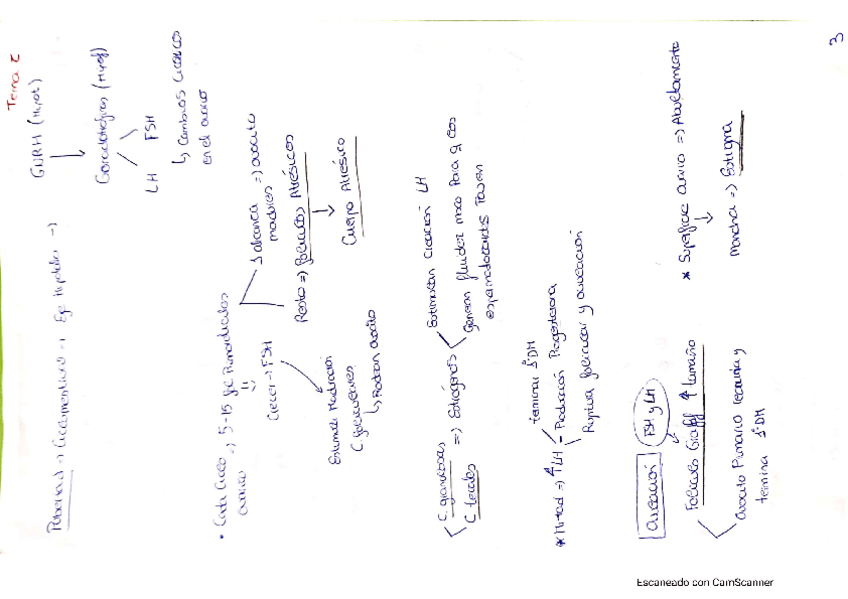 Tema 2
3
Pubertad => Crecimiento => Eje Hipotálamo =>
GnRH (Hipot)
Gonadotropinas (Hipóf)
LH FSH
↳ Cambios cíclicos
en el ovario
• Cada ciclo => 5-15 fol. Primordiales
ovárico
Crecer => FSH
1 alcanza => ovocito
madurez
Resto => folículos Atrésicos
Cuerpo Atrésico
Estimula Maduración
C. foliculares
↳ Rodean ovocito
C. granulosas
C. tecales
=> Estrógenos
Estimulan liberación LH
Generan fluidez moco para q los
espermatozoides pasen
* Mitad => ↑ LH
terminar 1ªDM
Producción Progesterona
Ruptura folicular y ovulación
Ovulación FSH y LH
Folículos Graaf ↑ tamaño
Ovocito Primario
termina 1ªDM
* Superficie ovario => Abultamiento
Mancha => Estigma
Escaneado con CamScanner